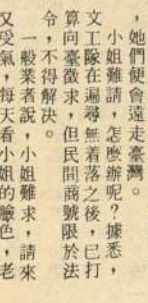 ，她們便會遠走臺灣。
小姐難請，怎麼辦呢？據悉，
文工隊在遍尋無着落之後，已打
算向臺徵求，但民間商號限於法
令，不得解決。
一般業者說，小姐難求，請來
又受氣，每天看小姐的臉色，老